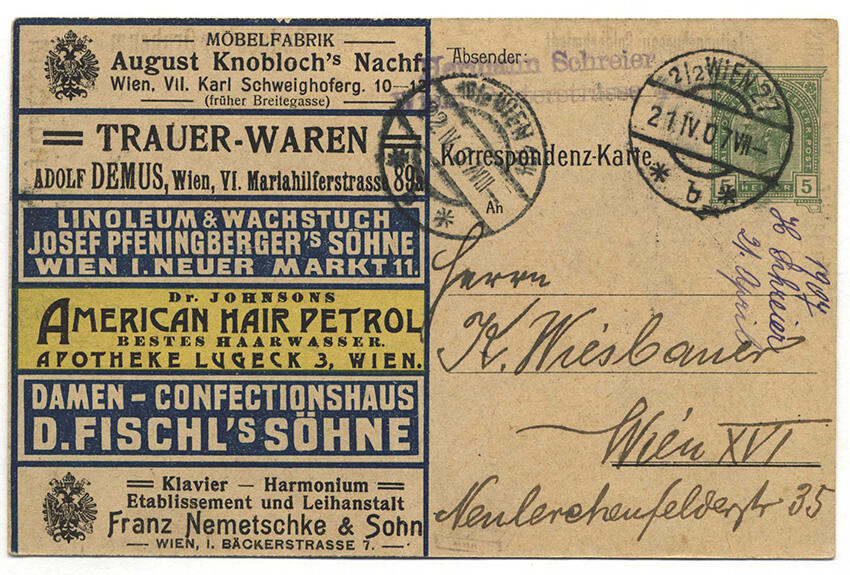 MÖBELFABRIK
August Knobloch's Nachf.
Wien, VII. Karl Schweighoferg. 10-12
(früher Breitegasse)
TRAUER-WAREN
ADOLF DEMUS, Wien, VI. Mariahilferstrasse 89a
LINOLEUM & WACHSTUCH
JOSEF PFENINGBERGER'S SÖHNE
WIEN I. NEUER MARKT 11.
Dr. JOHNSONS
AMERICAN HAIR PETROL
BESTES HAARWASSER.
APOTHEKE LUGECK 3, WIEN.
DAMEN - CONFECTIONSHAUS
D. FISCHL'S SÖHNE
Klavier - Harmonium
Etablissement und Leihanstalt
Franz Nemetschke & Sohn
WIEN, I. BÄCKERSTRASSE 7.
Absender:
Hermann Schreier
Korrespondenz-Karte.
An
2/2 WIEN 27
21.IV.07 VII-
* b *
HELLER 5
1907
H Schreier
21. April
Herrn
K. Wiesbauer
Wien XVI
Neulerchenfelderstr 35